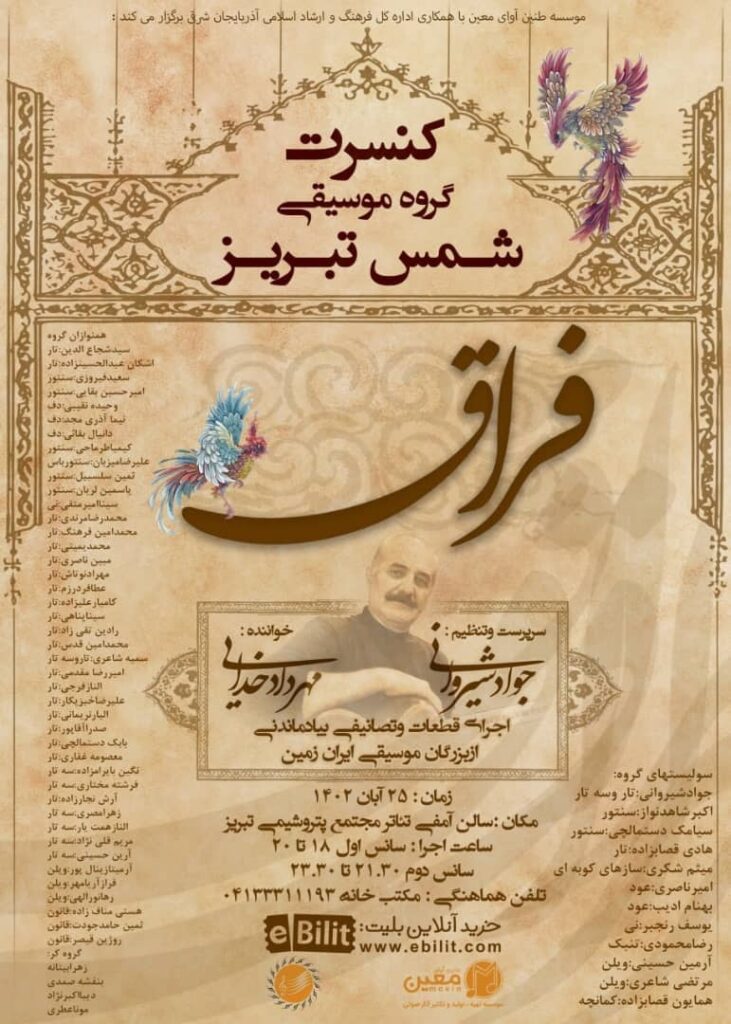 موسسه طنین آوای معین با همکاری اداره کل فرهنگ و ارشاد اسلامی آذربایجان شرق برگزار می کند :
کنسرت
گروه موسیقی
شمس تبریز
فراق
سرپرست وتنظیم :
جواد شیروانی
خواننده :
مهرداد خدایی
اجرای قطعات وتصانیفی بیادماندنی
ازبزرگان موسیقی ایران زمین
زمان : ۲۵ آبان ۱۴۰۲
مکان :سالن آمفی تئاتر مجتمع پتروشیمی تبریز
ساعت اجرا : سانس اول ۱۸ تا ۲۰
سانس دوم ۲۱.۳۰ تا ۲۳.۳۰
تلفن هماهنگی : مکتب خانه ۰۴۱۳۳۳۱۱۱۹۳
خرید آنلاین بلیت:
eBilit
www.ebilit.com
معین
moein
موسسه تهیه ، تولید و تکثیر آثار صوتی
سولیستهای گروه:
جوادشیروانی:تار وسه تار
اکبرشاهدنواز:سنتور
سیامک دستمالچی:سنتور
هادی قصابزاده:تار
میثم شکری:سازهای کوبه ای
امیرناصری:عود
بهنام ادیب:عود
یوسف رنجبر:نی
رضامحمودی:تنبک
آرمین حسینی:ویلن
مرتضی شاعری:ویلن
همایون قصابزاده:کمانچه
همنوازان گروه
سیدشجاع الدین:تار
اشکان عبدالحسینزاده:تار
سعیدفیروزی:سنتور
امیرحسین بقایی:سنتور
وحیده نقیبی:دف
نیما آذری مجد:دف
دانیال بقائی:دف
کیمیاطرماحی:سنتور
علیرضامیزبان:سنتورباس
ثمین سلسبیل:سنتور
یاسمین لریان:سنتور
سیناامیرمتقی:نی
محمدرضامرندی:تار
محمدامین فرهنگ:تار
محمدیمینی:تار
مبین ناصری:تار
مهرادنوتاش:تار
عطافردرزم:تار
کامیارعلیزاده:تار
سیناپناهی:تار
رادین تقی زاد:تار
محمدامین قدس:تار
سمیه شاعری:تاروسه تار
امیررضا مقدمی:تار
النازفرجی:تار
علیرضاخبزیکار:تار
الیارنریمانی:تار
صدراآقاپور:تار
بابک دستمالچی:تار
معصومه غفاری:تار
نگین بایرامزاده:سه تار
فرشته مختاری:سه تار
آرش نجارزاده:تار
زهرامصری:سه تار
النازهمت یار:سه تار
مریم قلی نژاد:سه تار
آرین حسینی:سه تار
آرمیتازینال پور:ویلن
فرازآریامهر:ویلن
رهانورالهی:ویلن
هستی مناف زاده:قانون
ثمین حامدجودت:قانون
روژین قیصر:قانون
گروه کر:
زهرابیتانه
بنفشه صمدی
دیبااکبرنژاد
موناعطری